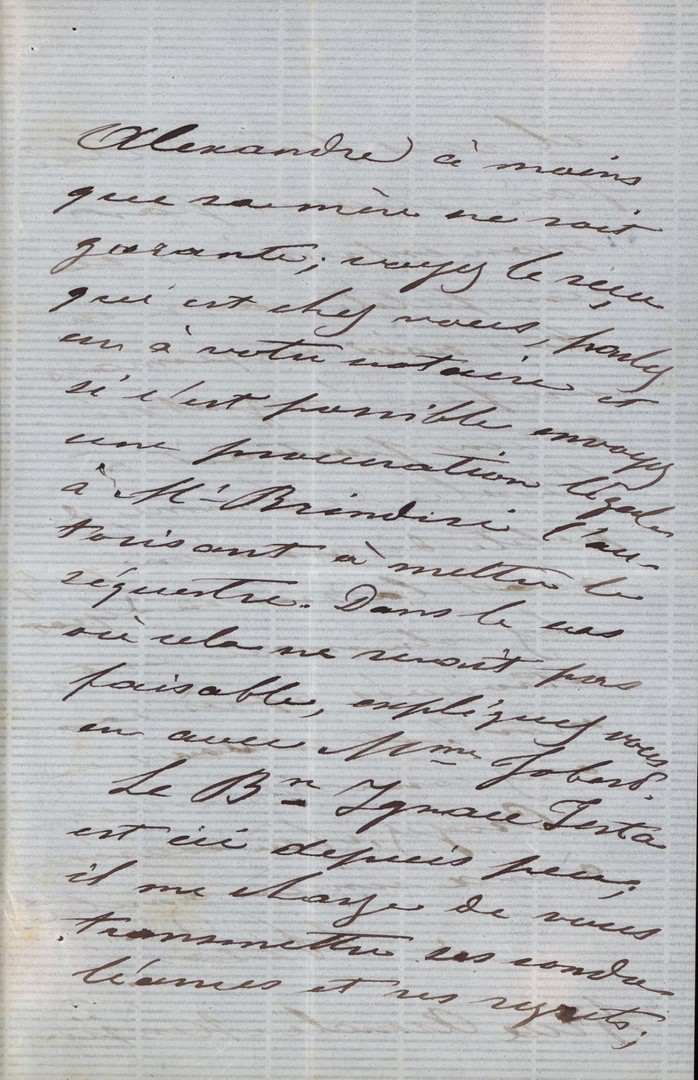 Alexandre à moins
que sa mère ne soit
garante; voyez le reçu
qui est chez vous, parlez
en à votre notaire et
si c'est possible envoyez
une procuration légale
à Mr. Brindisi l'au-
torisant à mettre le
séquestre. Dans le cas
où cela ne serait pas
faisable, expliquez vous
en avec Mme Jobert.
Le Bn Ignace Testa
est ici depuis peu,
il me charge de vous
transmettre ses condo
léances et ses regrets;